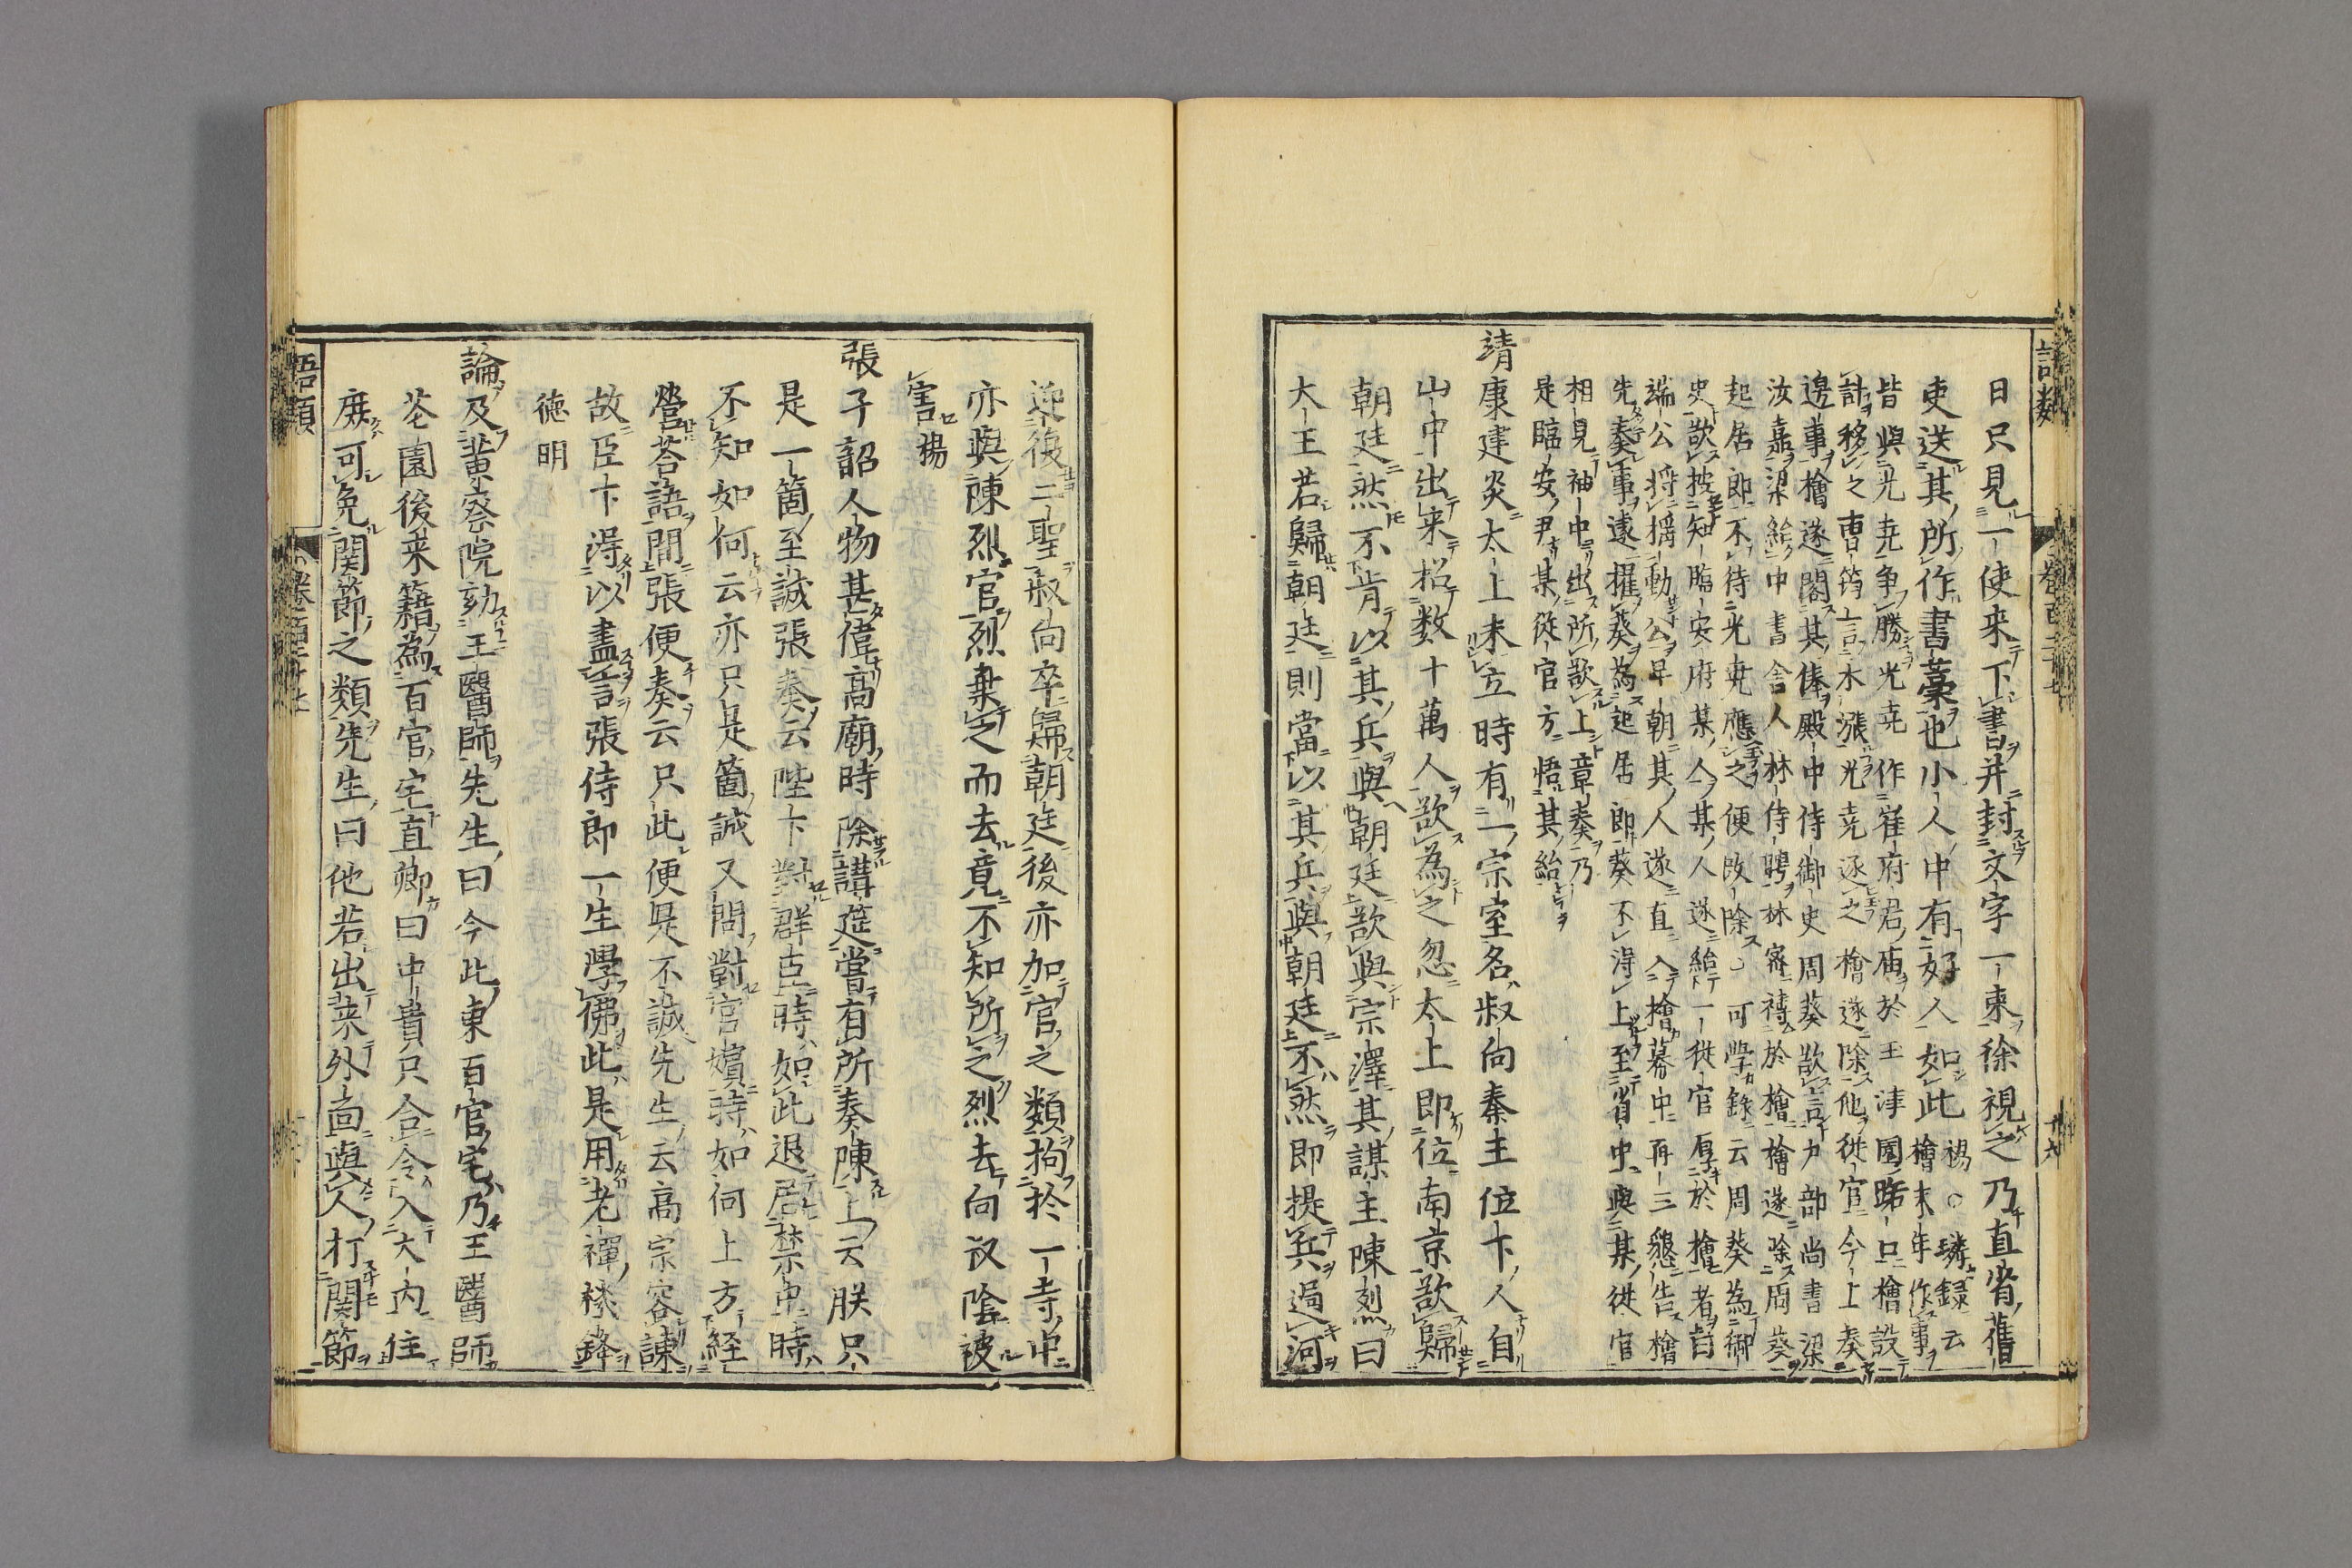 日只見一使来下書并封文字一束徐視之乃直省舊
吏送其所作書藁也小人中有好人如此
楊○璘録云
檜末年作事
皆與光尭争勝光尭作崔府君庙於玉津園路口檜設
計移之曺筠上言水漲光尭逐之檜遂除他従官今上奏
邊事檜遂閣其俸殿中侍御史周葵欲言戸部尚書梁
汝嘉梁紿中書舎人林侍聘林密禱於檜檜遂除周葵
起居郎不待光尭應之便改除○可學錄云周葵為御
史欲按知臨安府某人某人遂紿一従官厚於檜者曰
端公将揺動公早朝其人遂直入檜幕中再三懇告檜
先奏事遽擢葵為起居郎葵不淂上至省中與某従官
相見袖中出所欲上章奏乃
是臨安尹某従官方悟其紿
靖康建炎太上未立時有一宗室名叔向秦王位下人自
山中出来招数十萬人欲為之忽太上即位南京欲歸
朝廷然不肯以其兵與朝廷欲與宗澤其謀主陳烈曰
大王若歸朝廷則當以其兵與朝廷不然即提兵過河
語類
卷百三十七
迎復二聖叔向卒歸朝廷後亦加官之類拘於一寺中
亦與陳烈官烈棄之而去竟不知所之烈去向叔陰被
害楊
張子韶人物甚偉高廟時除講筵嘗有所奏陳上云朕只
是一箇至誠張奏云陛下對群臣時如此退居禁中時
不知如何云亦只是箇誠又問對宮嬪時如何上方経
營荅語間張便奏云只此便是不誠先生云高宗容諫
故臣下淂以盡言張侍郎一生學佛此是用老禪機鋒
徳明
論及黄察院劾王醫師先生曰今此東百官宅乃王醫師
花園後来籍為百官宅直卿曰中貴只合令入大内住
庶可免関節之類先生曰他若出来外面與人打関節
語類